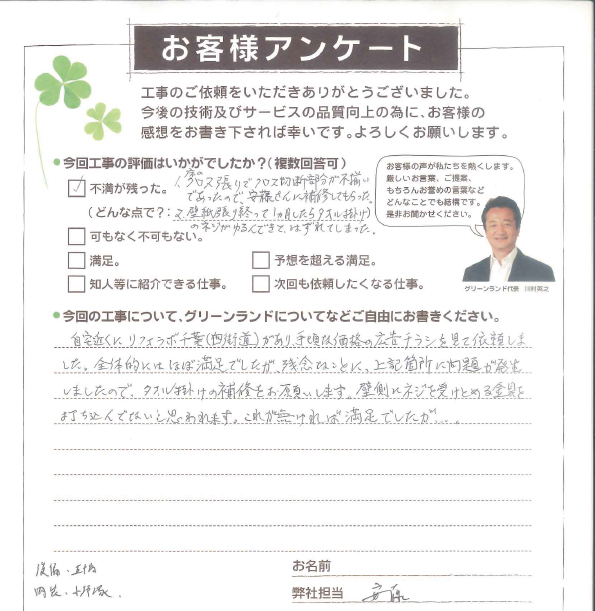 お客様アンケート
工事のご依頼をいただきありがとうございました。
今後の技術及びサービスの品質向上の為に、お客様の
感想をお書き下されば幸いです。よろしくお願いします。
今回工事の評価はいかがでしたか?(複数回答可)
不満が残った。
1. 床のクロス張りでクロス切断部分が不揃い
であったので、安藤さんに補修してもらった。
(どんな点で?:
2. 壁紙張り終って1ヵ月したらタオル掛け)
のネジがゆるんできて、はずれてしまった。
可もなく不可もない。
満足。
予想を超える満足。
知人等に紹介できる仕事。
次回も依頼したくなる仕事。
お客様の声が私たちを熱くします。
厳しいお言葉、ご提案、
もちろんお誉めの言葉など
どんなことでも結構です。
是非お聞かせください。
グリーンランド代表 川村英之
今回の工事について、グリーンランドについてなどご自由にお書きください。
自宅近くにリフォラボ千葉(四街道)があり、手頃な価格の広告チラシを見て依頼しま
した。全体的にはほぼ満足でしたが、残念なことに、上記箇所に問題が発生
しましたので、タオル掛けの補修をお願いします。壁側にネジを受けとめる金具を
打ち込んでないと思われます。これが無ければ満足でしたが、、、。
お名前
弊社担当 安藤